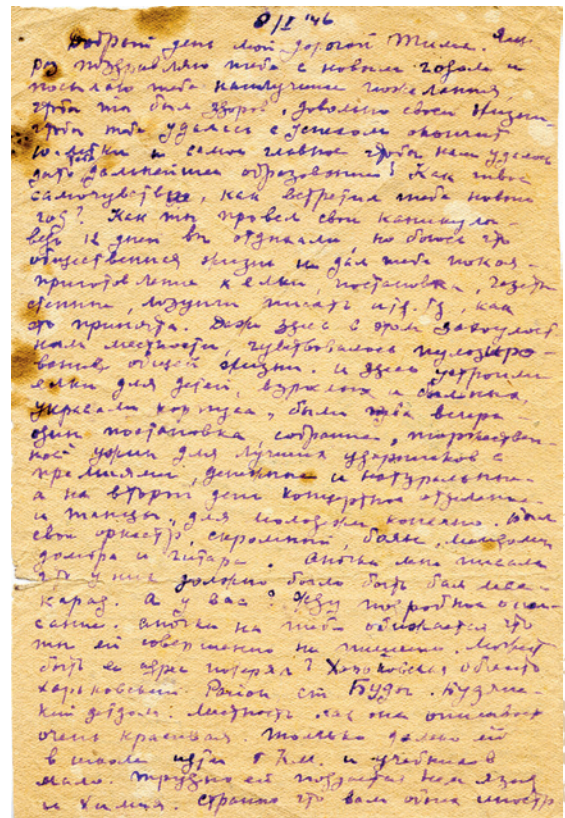 8/I '46
Добрый день мой дорогой Тима. Еще
раз поздравляю тебя с новым годом и
посылаю тебе наилучшие пожелания,
чтобы ты был здоров, доволно своей жизни
чтобы тебе удалось с успехом окончит
10-летки и самое главное чтобы нам удалось
дать тебе дальнейшее образование! Как твое
самочувствие, как встретил тебя новый
год? Как ты провел свои каникулы-
ведь 12 дней вы отдыхали, но боюсь что
общественная жизнь не дал тебе покоя-
приготовление к елки, постановка, газеты
стенные, лозунги писать и т.д. т.д, как
это принято. Даже здесь в этом закоулост
ном местности, чувствовалось пулозиро-
вание общей жизни. и здесь устроили
елки для детей, взрослых и больных,
украсали корпуса, были два вечера-
один постановка, собрание, торжествен-
ное ужин для лучших ударников с
премиями, денежные и натуральные-
а на второй день концертное отделение
и танцы, для молодежи конечно. Был
свой оркестр, скромный, баян, мандолин
домбра и гитара. Анечка мне писала
что у них должно было быть бал мас-
карад. А у вас? Жду подробное опи-
сание. Анечка на тебя обижается что
ты ей совершенно не пишешь. Может
быть ее адрес потерял? Харьковская область
Харьковский Район ст Буды. Будян-
ский детдом. Местность как она описывает
очень красивая. Только далеко ей
в школе идти 5 км. и учебников
мало. Трудно ей поддается нем язык
и химия. Странно что вам обоим иностр